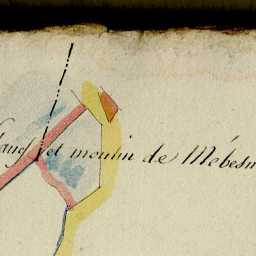 et moulin de Mébesn